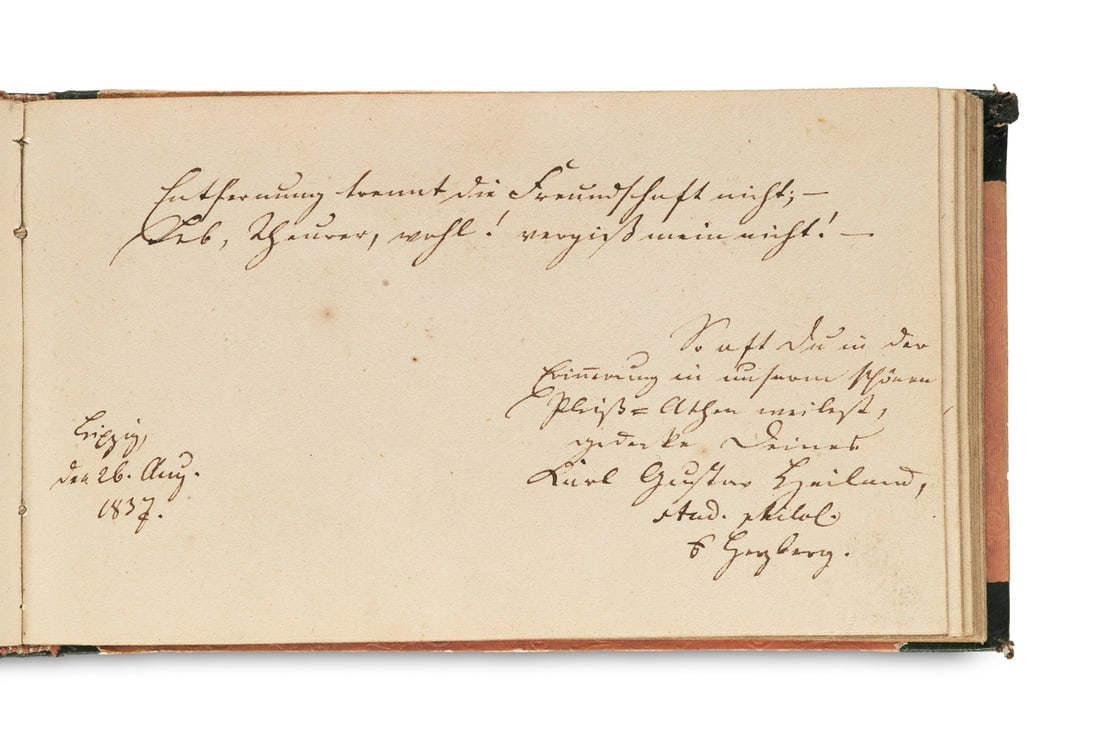 Entfernung trennt die Freundschaft nicht; –
Leb, Theurer, wohl! vergiß mein nicht! –
So oft Du in der
Erinnerung in unserm schönen
Pleiß= Athen weilest,
gedenke Deines
Karl Gustav Heiland,
stud. philol.
Herzberg.
Leipzig,
den 26. Aug.
1837.